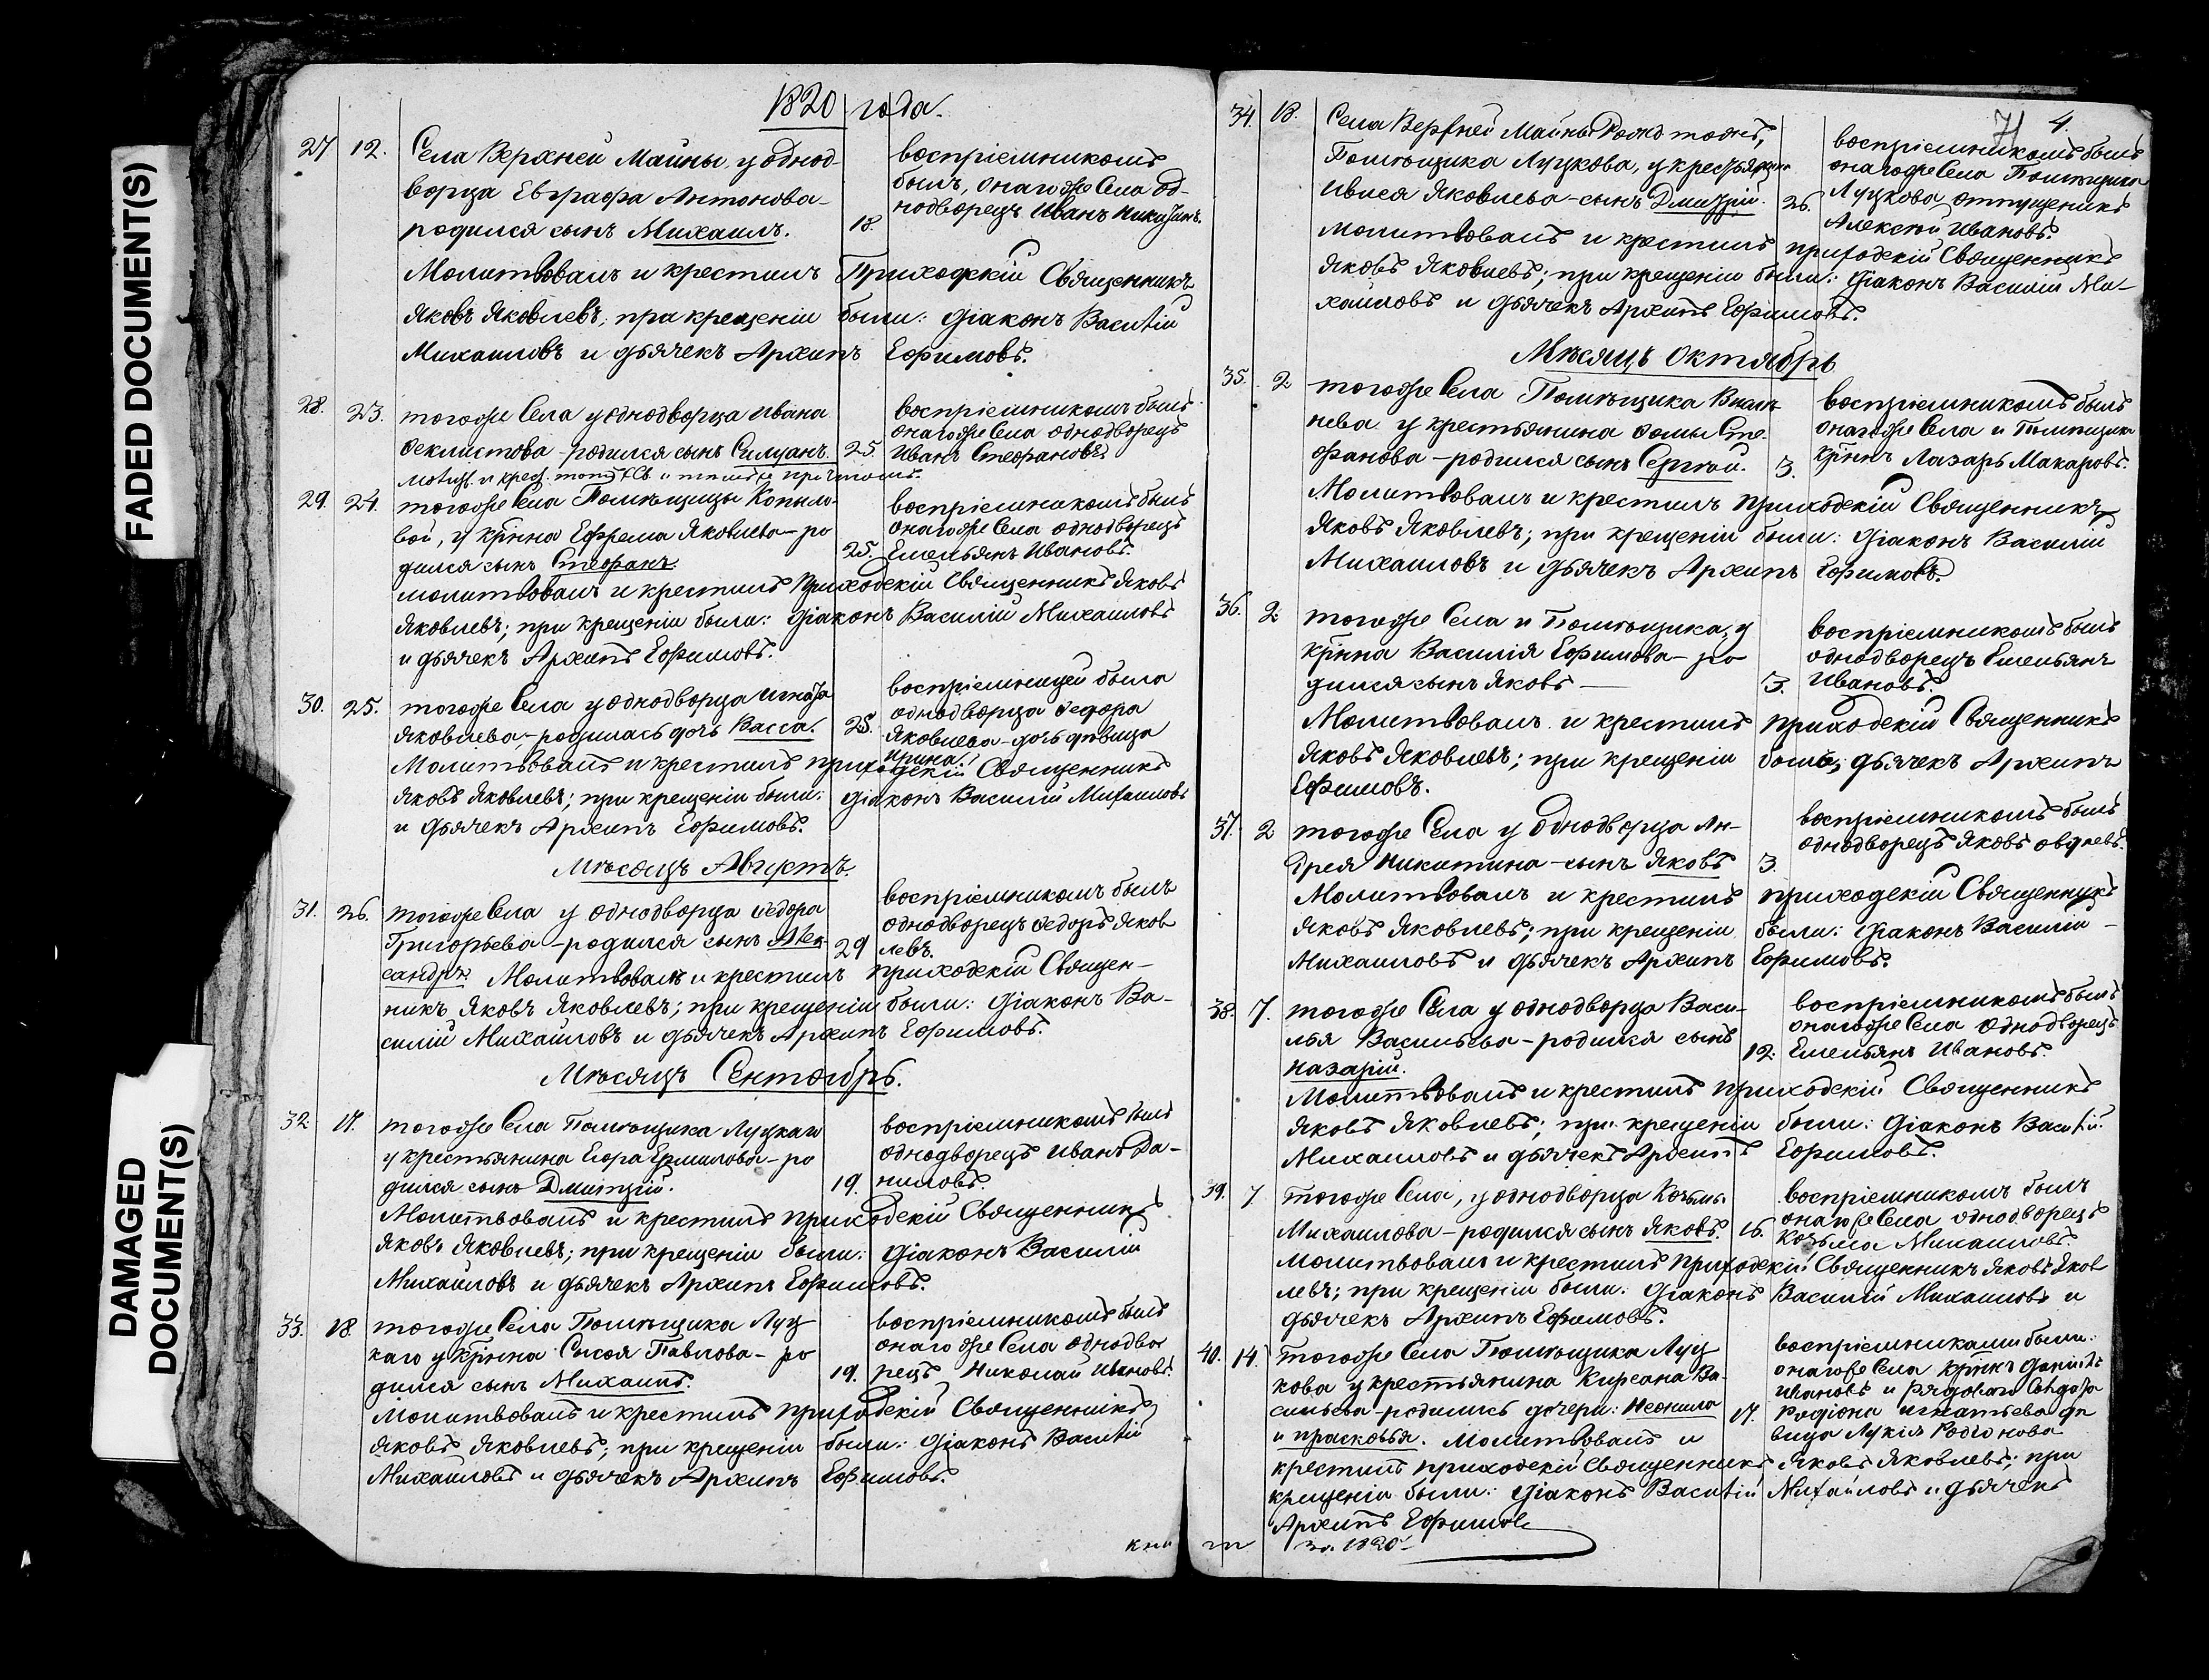 FADED DOCUMENT(S)
DAMAGED
DOCUMENT(S)
1820 года.
27 12. Села Верхней Майны у однод-
ворца Евграфа Антонова-
родился сынъ Михаилъ.
18.
воспріемникомъ
былъ, онагоже Села од-
нодворецъ Иванъ Никитинъ.
Молитвовалъ и крестилъ Приходскій Священникъ
Яковъ Яковлевъ; при крещеніи были: Діаконъ Василій
Михаиловъ и дьячекъ Архипъ Ефимовъ.
28. 23. тогоже Села у однодворца Ивана
Феклистова-родился сынъ Силуанъ. 25.
воспріемникомъ былъ
онагоже Села однодворецъ
Иванъ Стефановъ.
29. 24. тогоже Села Помѣщицы Копыло-
вой, у крнна Ефрема Яковлева-ро
дился сынъ Стефанъ.
25.
воспріемникомъ былъ
онагоже Села однодворецъ
Емельянъ Ивановъ.
молитвовалъ и крестилъ Приходскій Священникъ Яковъ
Яковлевъ; при крещеніи были: Діаконъ Василій Михаиловъ
и дьячекъ Архипъ Ефимовъ.
30. 25. тогоже Села у однодворца Игната
Яковлева-родилась дочь Васса. 28.
воспріемницей была
однодворца Федора
Яковлева-дочь дѣвица
Ирина.
Молитвовалъ и крестилъ приходскій Священникъ
Яковъ Яковлевъ; при крещеніи были: Діаконъ Василій Михаиловъ
и дьячекъ Архипъ Ефимовъ.
Мѣсяцъ Августъ.
31. 26. тогоже Села у однодворца Федора
Григорьева-родился сынъ Алек-
сандръ. 29
воспріемникомъ былъ
однодворецъ Федоръ Яков
левъ.
Молитвовалъ и крестилъ приходскій Священ-
никъ Яковъ Яковлевъ; при крещеніи были: Діаконъ Ва-
силій Михаиловъ и дьячекъ Архипъ Ефимовъ.
Мѣсяцъ Сентябрь.
32. 17. тогоже Села Помѣщика Луцкаго
у крестьянина Егора Ермилова-ро
дился сынъ Дмитрій.
19.
воспріемникомъ былъ
однодворецъ Иванъ Да-
ниловъ.
Молитвовалъ и крестилъ приходскій Священникъ
Яковъ Яковлевъ; при крещеніи были: Діаконъ Василій
Михаиловъ и дьячекъ Архипъ Ефимовъ.
33. 18. тогоже Села Помѣщика Луц
каго у крнна Сысоя Павлова-ро
дился сынъ Михаилъ.
19.
воспріемникомъ былъ
онагоже Села однодво
рецъ Николай Ивановъ.
Молитвовалъ и крестилъ приходскій Священникъ
Яковъ Яковлевъ; при крещеніи были: Діаконъ Василій
Михаиловъ и дьячекъ Архипъ Ефимовъ.
4.
34. 18. Села Верхней Майны Рожд тожъ,
Помѣщика Луцкова, у крестьянин
Яковлева-сынъ Дмитрій. 26.
воспріемникомъ былъ
онагоже Села Помѣщика
Луцкова отпущеникъ
Алексѣй Ивановъ.
Молитвовалъ и крестилъ приходскій Священникъ
Яковъ Яковлевъ; при крещеніи были: Діаконъ Василій Ми-
хаиловъ и дьячекъ Архипъ Ефимовъ.
Мѣсяцъ Октябрь
35. 2 тогоже Села Помѣщика
нева у крестьянина Фомы Сте-
фанова-родился сынъ Сергѣй. 3.
воспріемникомъ былъ
онагоже Села и Помѣщика
крнинъ Лазарь Макаровъ.
Молитвовалъ и крестилъ приходскій Священникъ
Яковъ Яковлевъ; при крещеніи были: Діаконъ Василій
Михаиловъ и дьячекъ Архипъ Ефимовъ.
36. 2 тогоже Села и Помѣщика, у
крнна Василія Ефимова-ро
дился сынъ Яковъ- 3.
воспріемникомъ былъ
однодворецъ Емельянъ
Ивановъ.
Молитвовалъ и крестилъ приходскій Священникъ
Яковъ Яковлевъ; при крещеніи былъ, дьячекъ Архипъ
Ефимовъ.
37. 2 тогоже Села у однодворца Ан-
дрея Никитина-сынъ Яковъ 3.
воспріемникомъ былъ
однодворецъ Яковъ Овдѣевъ.
Молитвовалъ и крестилъ приходскій Священникъ
Яковъ Яковлевъ; при крещеніи были: Діаконъ Василій-
Михаиловъ и дьячекъ Архипъ Ефимовъ.
38. 7. тогоже Села у однодворца Васи-
лья Васильева-родился сынъ
Назарій.
12.
воспріемникомъ былъ
онагоже Села однодворецъ
Емельянъ Ивановъ.
Молитвовалъ и крестилъ приходскій Священникъ
Яковъ Яковлевъ; при крещеніи были: Діаконъ Василій
Михаиловъ и дьячекъ Архипъ Ефимовъ.
39. 7 тогоже Села, у однодворца Козьмы
Михаилова-родился сынъ Яковъ. 16.
воспріемникомъ былъ
онагоже Села однодворецъ
Козьма Михаиловъ.
молитвовалъ и крестилъ Приходскій Священникъ Яковъ Яков
левъ; при крещеніи были: Діаконъ Василій Михаиловъ и
дьячекъ Архипъ Ефимовъ.
40. 14. тогоже Села Помѣщика Луц
кова у крестьянина Кирсана Ва-
сильева-родились дочери: Неонила
и прасковья.
17.
воспріемниками были:
онагоже Села крнинъ Даніилъ
Ивановъ и рядоваго Солдата
Родіона Игнатьева дѣ
вица Лукія Родіонова
Молитвовалъ и
крестилъ приходскій Священникъ Яковъ Яковлевъ; при
крещеніи были: Діаконъ Василій Михаиловъ и дьячекъ
Архипъ Ефимовъ